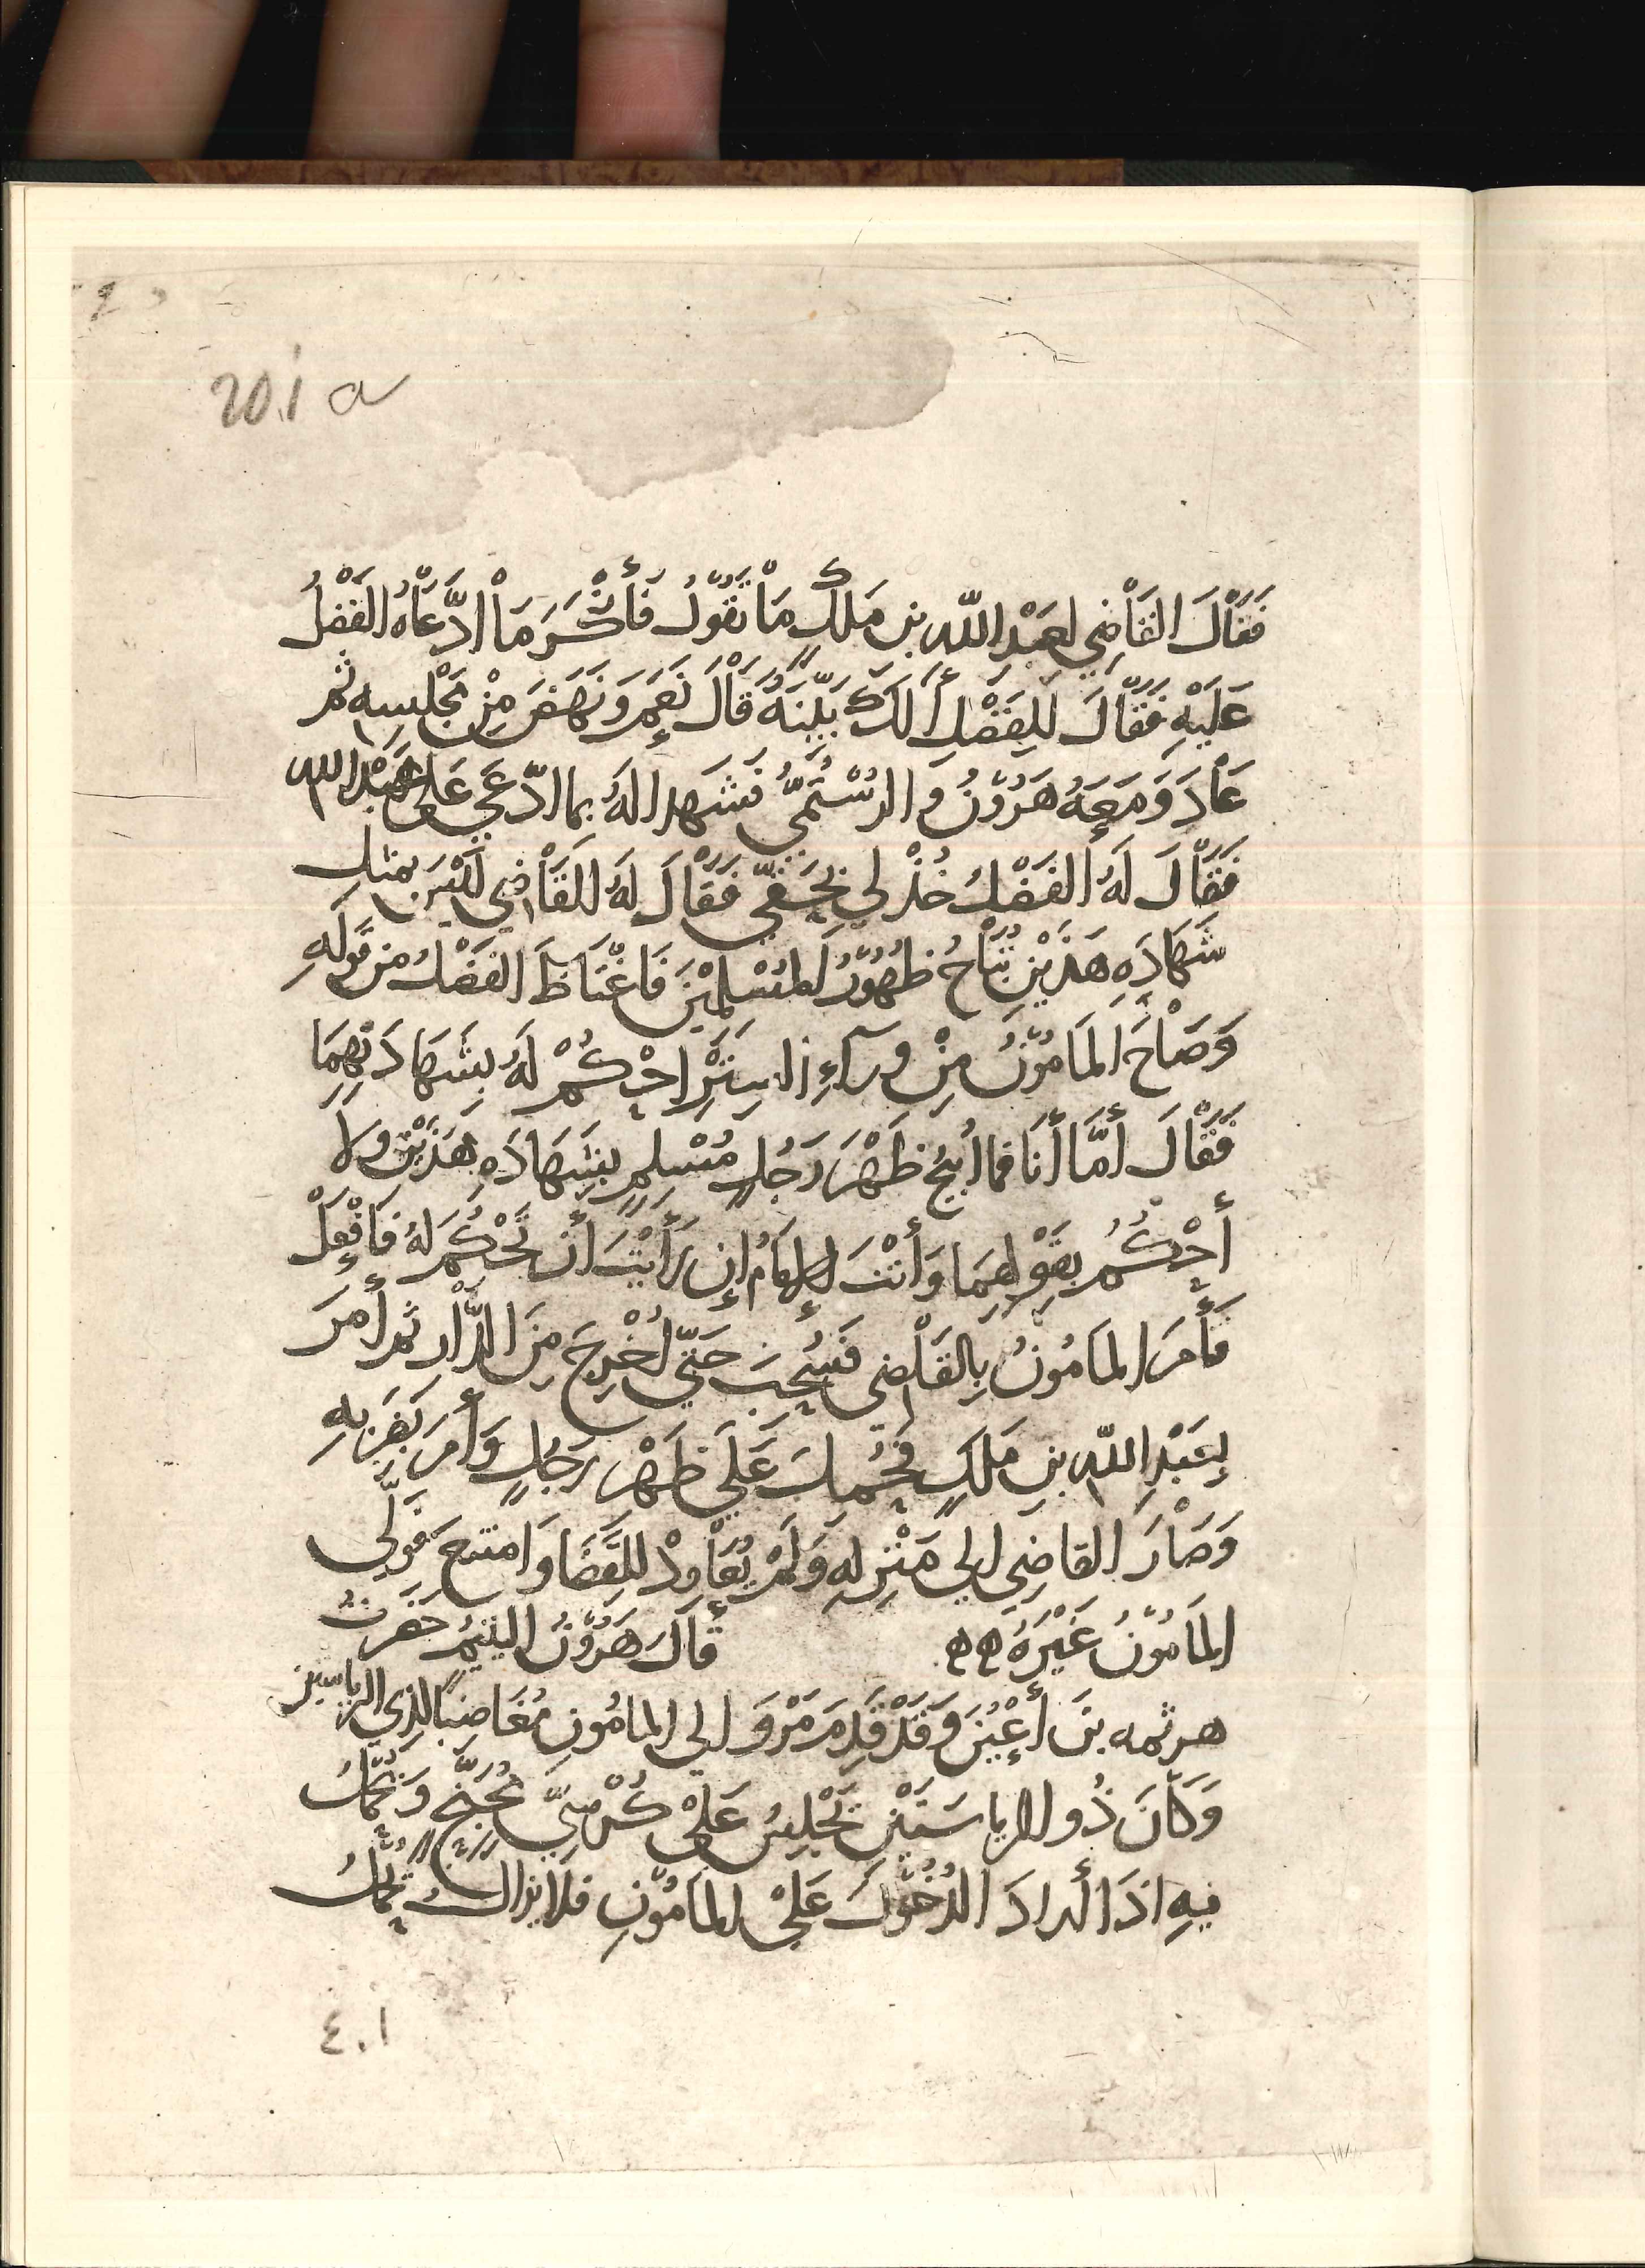 201 a
فَقَاْلَ القَاْضِي لعَبْدِ اللّه بن مَلكٍ مَاْ تقُوْلُ فَأَنْكَرَ مَاْ ادَّعَاْهُ الفَضْلُ
عَلَيْهِ فَقَاْلَ لِلفَضْلِ أَلَكَ بَيِّنَةٌ قَاْلَ نَعَم وَنَهَضَ مِنْ مَجْلسِهِ ثم
عَاْدَ وَمَعَهُ هَرُوْنُ وَالرُسْتُمِيُّ فَشَهِدا لهُ بما ادّعَي عَلي عَبْد الله
فَقَاْلَ لَهُ الفَضْلُ خُذْ لي بِحَقّي فَقَاْلَ لهُ القَاْضِي لَيْسَ بمثلِ
شَهَادَهِ هَذَيْنِ تُبَاْحُ ظُهُوْرُ المُسْلِمِيْنَ فَاغْتَاظَ الفَضْلُ من قَولِهِ
وَصَاْحَ المَامُوْنُ مِنْ ورآءِ السِتْرِ احْكُمْ لهُ بشَهَادَتِهِمَا
فَقَاْلَ أَمَّا أَنَا فما أُبيحُ ظَهْرَ رَجُلٍ مُسْلِمٍ بِشَهَادَهِ هَذَيْنِ ولا
أَحْكُمُ بقَوْلِهِمَا وَأَنْتَ الإمَامُ إن رَأَيْتَ أَن تَحْكُمَ لهُ فَافْعَلْ
فَأَمَرَ المَامُونُ بِالقَاْضِي فَسُحِبَ حَتّي أُخْرِجَ مِنَ الدَّاْرِ ثم أَمَرَ
بِعَبْدِ اللّه بنِ مَلكٍ فَحُمِلَ عَلَي ظَهْرِ رَجُلٍ وَأَمَرَ بضَرْبِهِ
وَصَاْرَ القاضِي الي مَنْزِلهِ وَلَمْ يُعَاْوِدْ للقَضَا وَامتنع فوَلَّي
المَامُوْنُ غَيْرَهُ هه قَالَ هَرُوْنُ اليتيمُ حَضَرتُ
هرثمه بنَ أَعْيُنَ وَقَدْ قَدِمَ مَرْوَ الي المامُونِ مُغَاضِبًا لِذِي الرياستين
وَكَانَ ذُو الرياسَتَيْنِ يَجْلِسُ عَلَي كُرْسِيٍّ مُجَنَّحٍ وَيُحْمَلُ
فيهِ اذَا أَرادَ الدُخُوْلَ عَلَي المامُوْنِ فلا يزالُ يُحْمَلُ
٤٠١